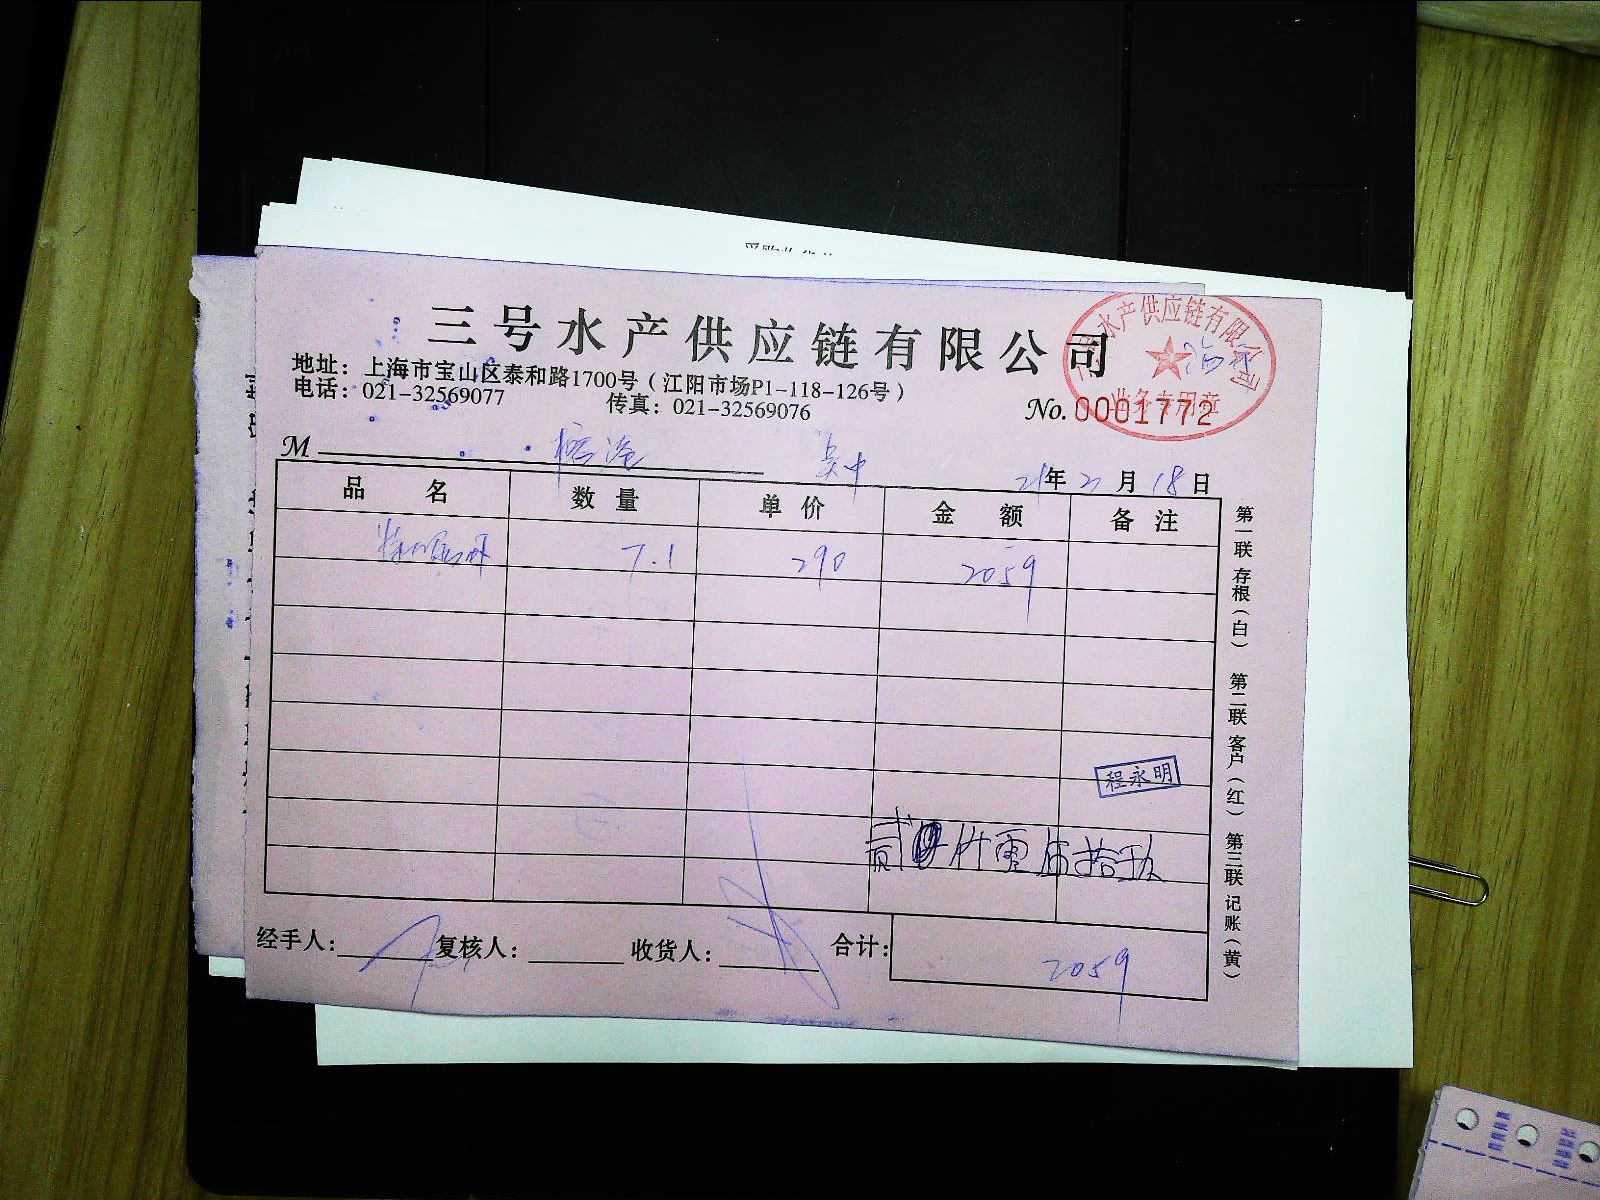 三号水产供应链有限公司
地址：上海市宝山区泰和路1700号（江阳市场P1-118-126号）
电话：021-32569077 传真：021-32569076
No.0001772
水产供应链有限公司
业务专用章
M 吴中 21年2月18日
品名 数量 单价 金额 备注
7.1 290 2059
程永明
贰仟零伍拾玖
经手人： 复核人： 收货人： 合计： 2059
第一联 存根（白） 第二联 客户（红） 第三联 记账（黄）